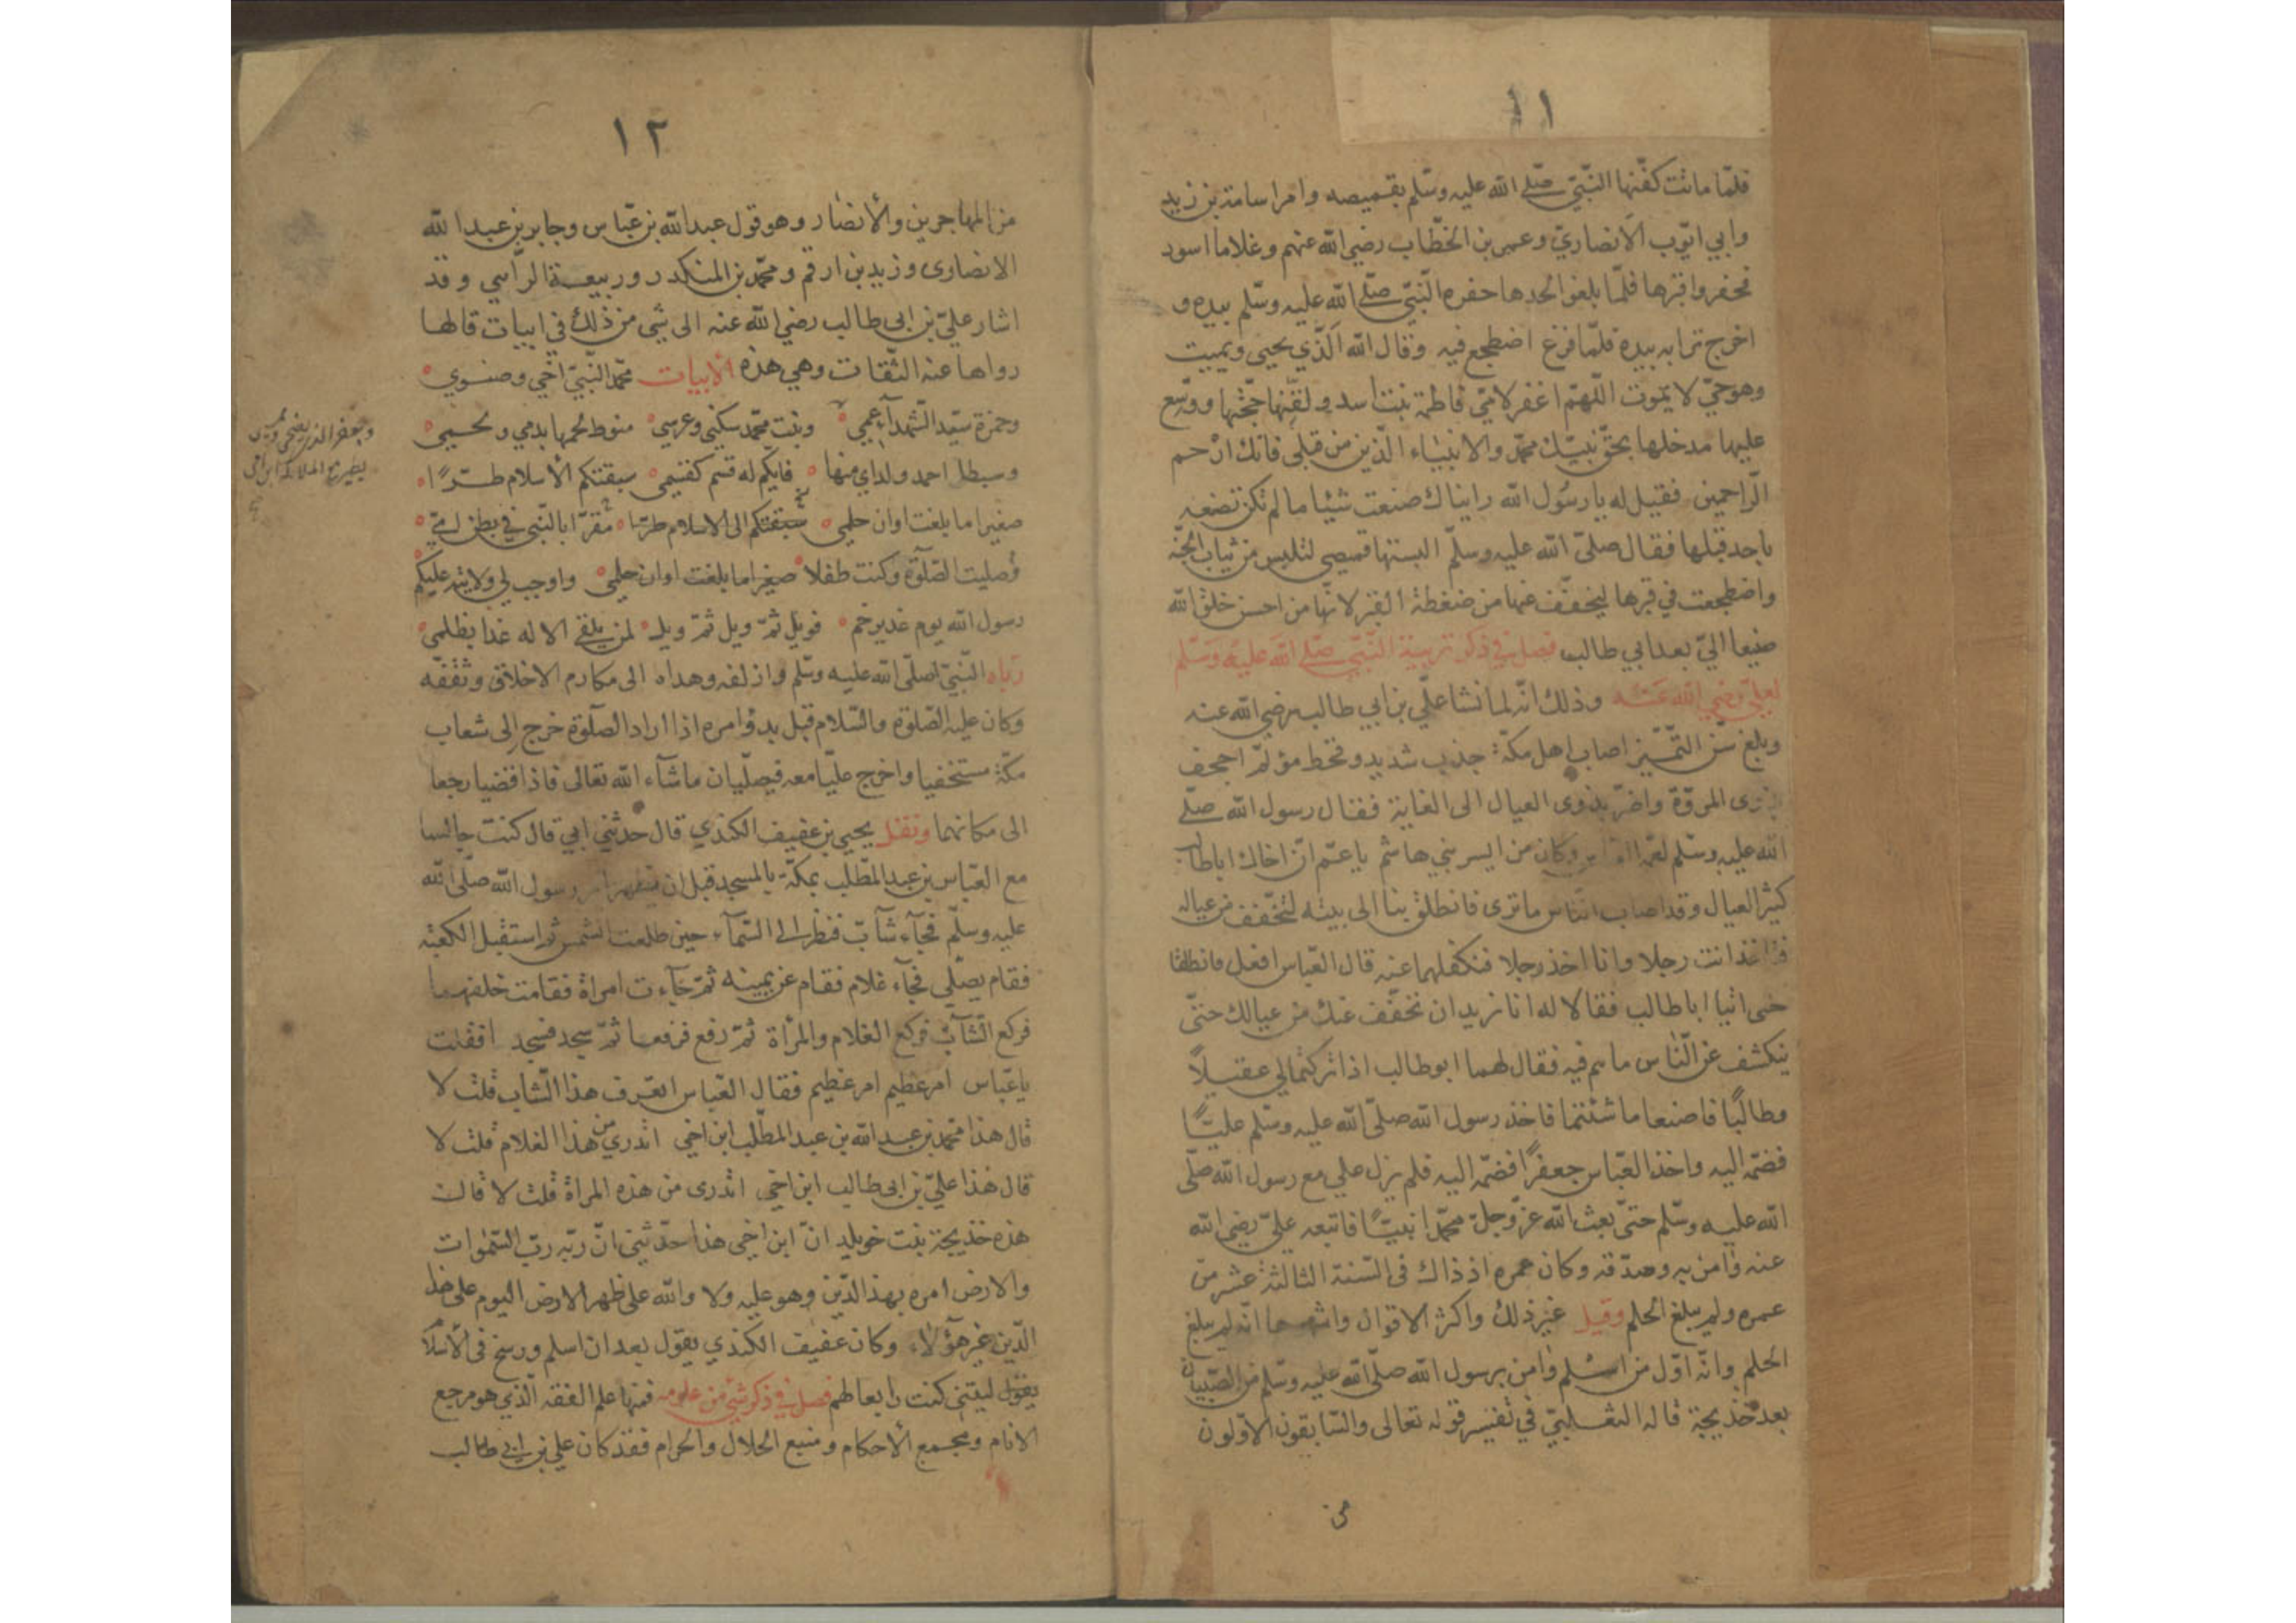 ١١
فلمّا ماتت كفّنها النّبيّ صلّى الله عليه وسلّم بقميصه وامر اسامة بن زيد
وابي ايّوب الانصاريّ وعمر بن الخطّاب رضي الله عنهم وغلاما اسود
فحفروا قبرها فلمّا بلغوا لحدها حفره النّبيّ صلّى الله عليه وسلّم بيده و
اخرج ترابه بيده فلمّا فرغ اضطجع فيه وقال الله الّذي يحيى ويميت
وهو حيّ لا يموت اللّهمّ اغفر لامّي فاطمة بنت اسد ولقّنها حجّتها ووسّع
عليها مدخلها بحقّ نبيّك محمّد والانبياء الّذين من قبلى فانّك ارحم
الرّاحمين فقيل له يا رسُول الله رايناك صنعت شيئا ما لم تكن تصنعه
باحد قبلها فقال صلّى الله عليه وسلّم البستها قميصى لتلبس من ثياب الجنّة
واضطجعت في قبرها ليخفّف عنها من ضغطة القبر لانّها من احسن خلق الله
صنيعا اليّ بعد ابي طالب فصل في ذكر تربية النّبيّ صلّى الله عليه وسلّم
لعليّ رضي الله عنه وذلك انّه لما نشا عليّ بن ابي طالب رضي الله عنه
وبلغ سنّ التّمييز اصاب اهل مكّة جذب شديد وقحط مؤلم اجحف
بذوى المروّة واضرّ بذوى العيال الى الغاية فقال رسول الله صلّى
الله عليه وسلّم لعمّه العبّاس وكان من ايسر بني هاشم يا عمّ انّ اخاك ابا طالب
كثير العيال وقد اصاب النّاس ما ترى فانطلق بنا الى بيته لنخفّف من عياله
فتاخذ انت رجلا وانا اخذ رجلا فنكفلهما عنه قال العبّاس افعل فانطلقا
حتى اتيا ابا طالب فقالا له انا نريد ان نخفّف عنك من عيالك حتّى
ينكشف عن النّاس ما هم فيه فقال لهما ابو طالب اذا تركتما لي عقيلاً
وطالبًا فاصنعا ما شئتما فاخذ رسول الله صلّى الله عليه وسلّم عليّاً
فضمّه اليه واخذ العبّاس جعفرًا فضمّه اليه فلم يزل علي مع رسول الله صلّى
الله عليه وسلّم حتىّ بعث الله عزّ وجلّ محمّدا نبيّاً فاتبعه عليّ رضي الله
عنه وامن به وصدّقه وكان عمره اذ ذاك فى السّنة الثالثة عشر من
عمره ولم يبلغ الحلم وقيل غير ذلك واكثر الاقوال واشهرها انّه لم يبلغ
الحلم وانّه اوّل من اسلم وامن برسول الله صلّى الله عليه وسلّم من الصّبيان
بعد خديجة قاله الثعلبيّ في تفسير قوله تعالى والسّابقون الاوّلون
من
١٢
من المهاجرين والأنصار وهو قول عبد الله بن عبّاس وجابر بن عبد الله
الانصاوى وزيد بن ارقم ومحمّد بن المنكدر وربيعة الرّاسي وقد
اشار عليّ بن ابى طالب رضي الله عنه الى شى من ذلك في ابيات قالها
رواها عنه الثّقات وهي هذه الأبيات محمّد النّبيّ اخي وصنوي
وحمزة سيّد الشّهدآء عمي وبنت محمّد سكني وعرسي منوط لحمها بدمي ولحمي
وسبطا احمد ولداي منها فايّكم له قسم كقسمي سبقتكم الأسلام طرّاً
صغيرا ما بلغت اوان حلمي سبقتكم الى الاسلام طرّا مقرّا بالنّبي في بطن امّي
وصليت الصّلوة وكنت طفلا صغيرا ما بلغت اوان حلمي واوجب لي ولايته عليكم
رسول الله يوم غدير خم فويل ثمّ ويل ثمّ ويل لمن يلقى الاله غدا بظلمي
ربّاه النّبيّ صلّى الله عليه وسلّم وازلفه وهداه الى مكارم الاخلاق وثقّفه
وكان عليه الصّلوة والسّلام قبل بدو امره اذا اراد الصّلوة خرج الى شعاب
مكّة مستخفيا واخرج عليّا معه فيصلّيان ما شآء الله تعالى فاذا قضيا رجعا
الى مكانهما ونقل يحيى بن عفيف الكندي قال حدثني ابي قال كنت جالسا
مع العبّاس بن عبد المطّلب بمكّة بالمسجد قبل ان يظهر امر رسول الله صلّى الله
عليه وسلّم فجآء شآبّ فنظر الى السّمآء حين طلعت الشمس ثم استقبل الكعبة
فقام يصلّى فجآء غلام فقام عن يمينه ثمّ جآءت امراة فقامت خلفهما
فركع الشّآبّ فركع الغلام والمرأة ثمّ رفع فرفعا ثمّ سجد فسجد افقلت
يا عبّاس امر عظيم امر عظيم فقال العبّاس اتعرف هذا الشّاب قلت لا
قال هذا محمّد بن عبد الله بن عبد المطّلب ابن اخي اتدري من هذا الغلام قلت لا
قال هذا عليّ بن ابى طالب ابن اخي اتدرى من هذه المراة قلت لا قالت
هذه خديجة بنت خويلد انّ ابن اخى هذا حدّثني انّ ربّه ربّ السّموات
والارض امره بهذا الدّين وهو عليه ولا والله على ظهر الارض اليوم على هذا
الدّين غير هؤلاء وكان عفيف الكندي يقول بعد ان اسلم ورسخ فى الاسلام
يقول ليتنى كنت رابعا لهم فصل في ذكر شئ من علومه فمنها علم الفقه الّذي هو مرجع
الانام ومجمع الأحكام ومنبع الحلال والحرام فقد كان علي بن ابي طالب
وجعفر الذي يضحى ويمسى
يطير مع الملائكة ابن امى